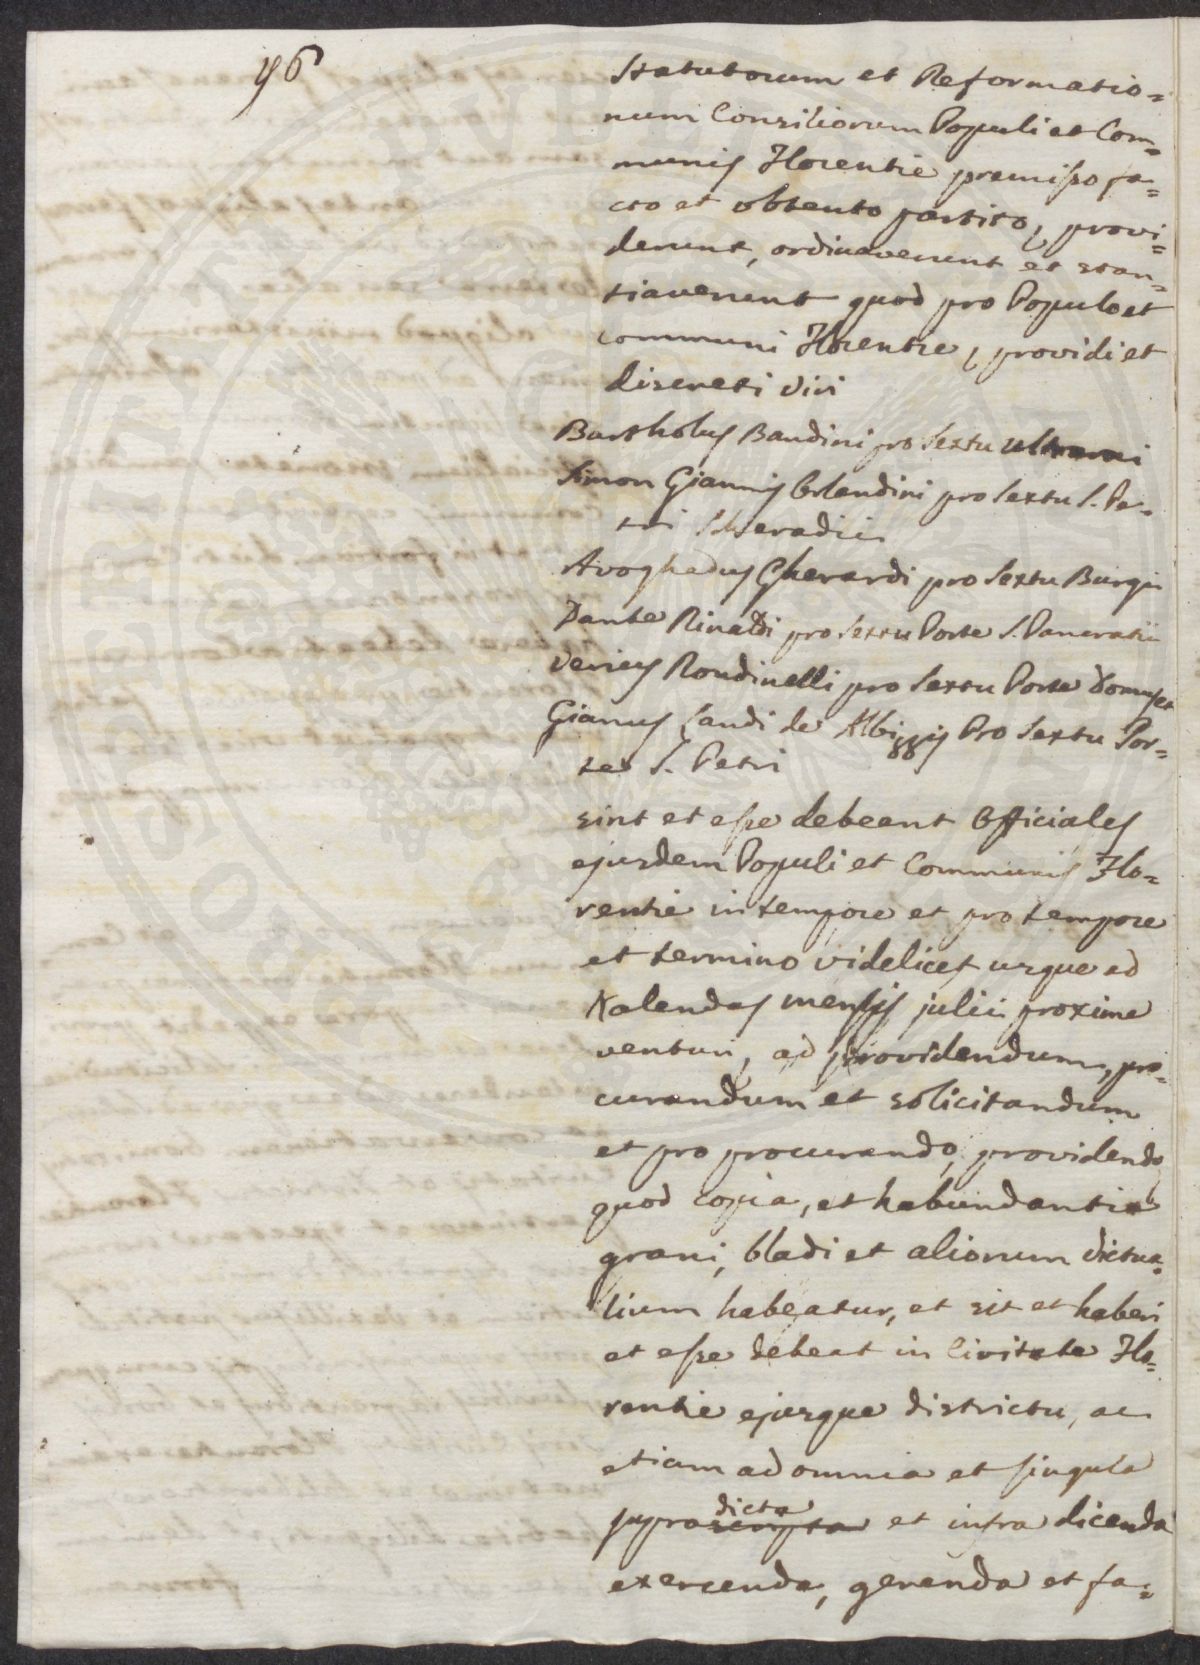 96
Statutorum et Reformatio=
num Consiliorum Populi et Com=
munis Florentie premisso fa=
cto et obtento partito, provi=
derunt, ordinaverunt et stan=
tiaverunt quod pro Populo et
communi Florentie, providi et
discreti viri
Bartholus Bandini pro Sextu Ultrarni
Simon Giannis Orlandini pro Sextu S. Pe=
tri Scheradii
Avoghadus Gherardi pro Sextu Burgi
Dante Rinaldi pro Sextu Porte S. Pancratii
Verius Rondinelli pro Sextu Porte domus et
Gianus Landi de Albizzis Pro Sextu Por=
te S. Petri
sint et esse debeant Officiales
ejusdem Populi et Communis Flo=
rentie in tempore et pro tempore
et termino videlicet usque ad
Kalendas mensis julii proxime
venturi, ad providendum, pro=
curandum et solicitandum
et pro procurando, providendo
quod copia, et habundantia
grani, bladi et aliorum victua=
lium habeatur, et sit et haberi
et esse debeat in Civitate Flo=
rentie ejusque districtu, ac
etiam ad omnia et singula
dicta
suprascripta et infra dicenda
exercenda, gerenda et fa=